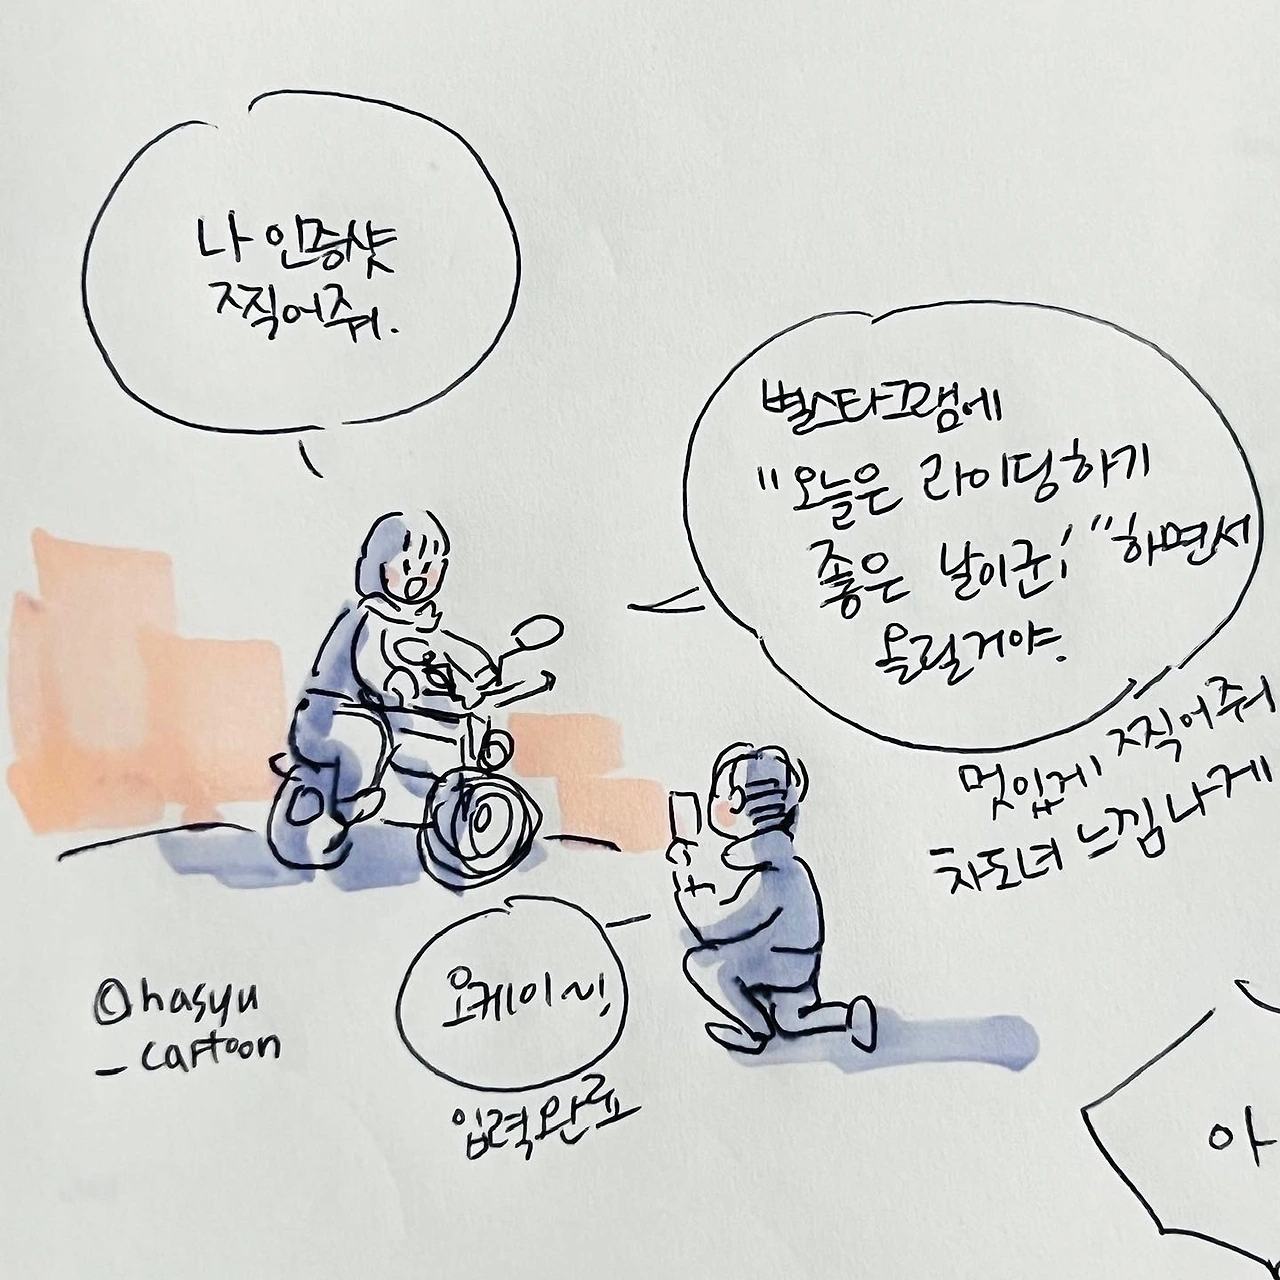 나 인증샷
찍어줘.
별스타그램에
"오늘은 라이딩하기
좋은 날이군!" 하면서
올릴거야.
멋있게 찍어줘
차도녀 느낌나게
오케이~!
입력완료
©hasyu
_cartoon
아